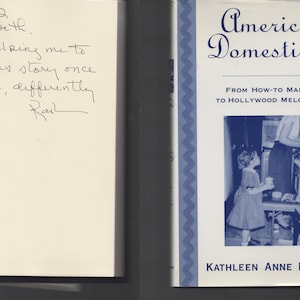 Beth,
me to
story once
differently
Americ
Domesti
FROM HOW-TO MA
TO HOLLYWOOD MEL
KATHLEEN ANNE